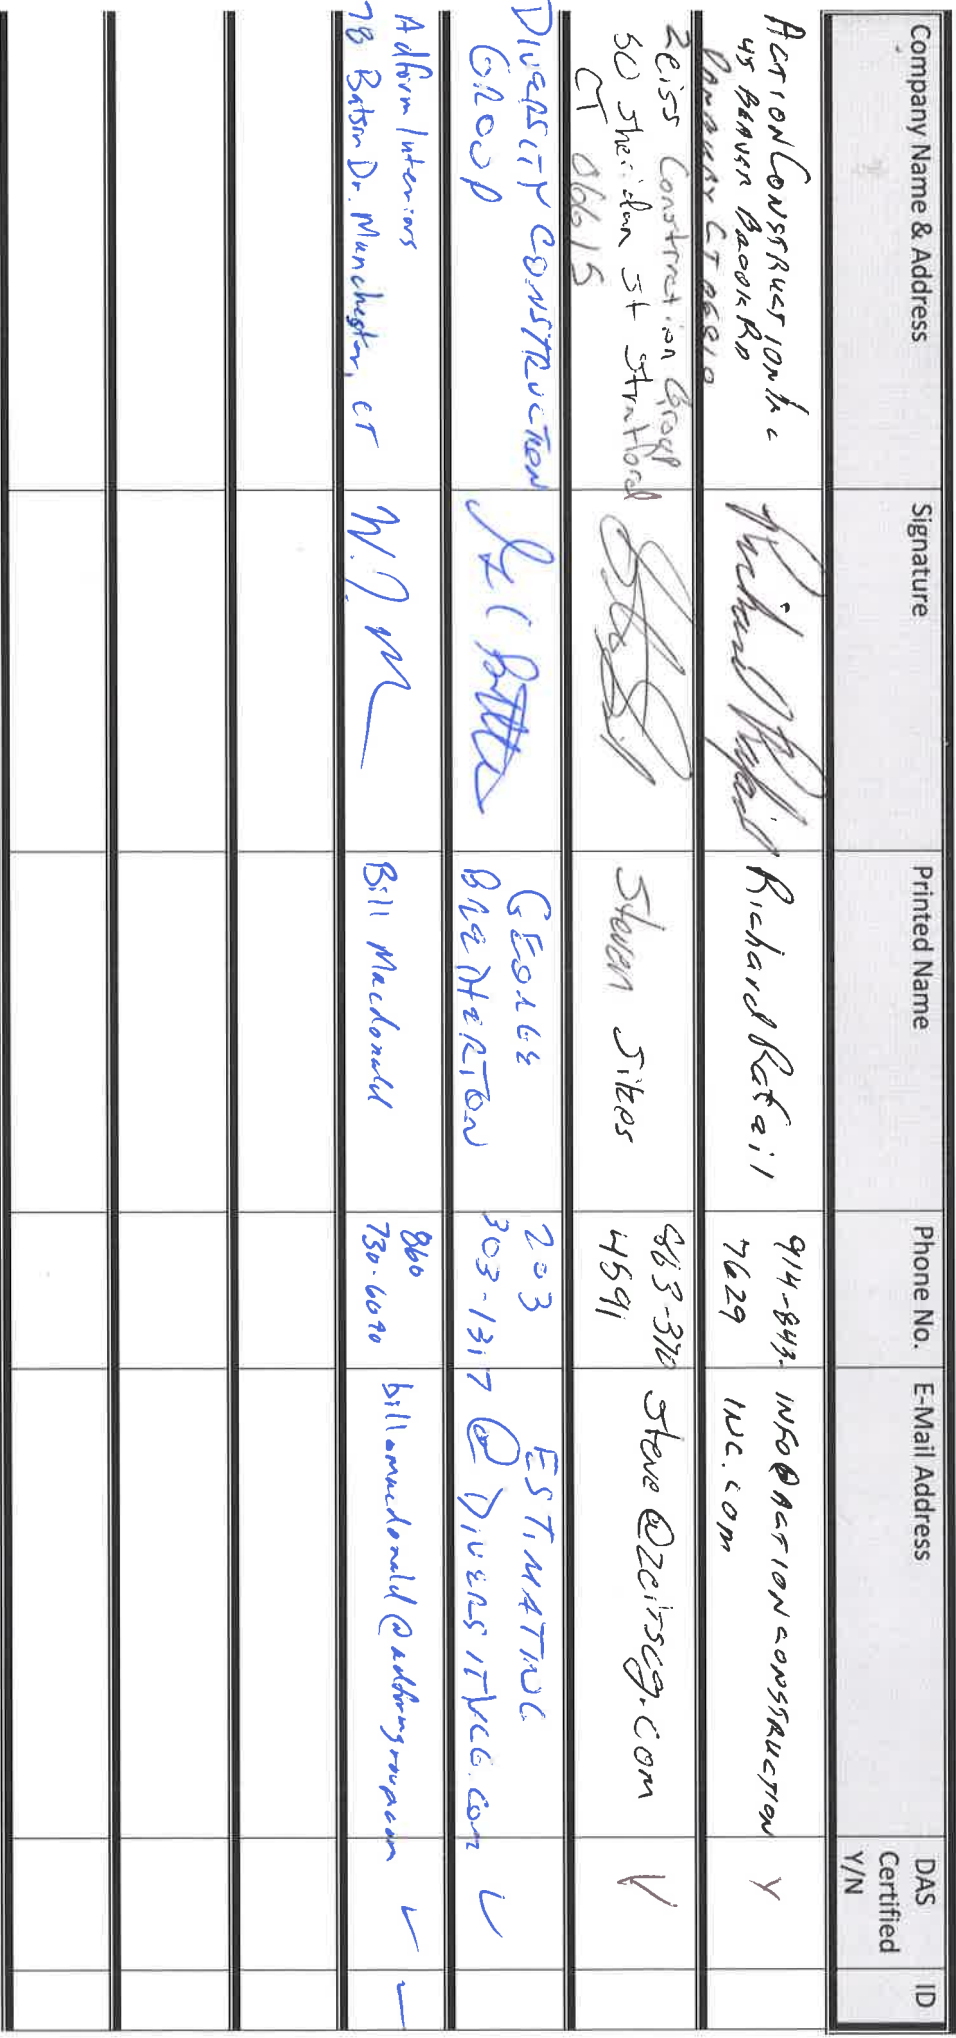 Company Name & Address
Signature
Printed Name
Phone No.
E-Mail Address
DAS
Certified
Y/N
ID
ACTION CONSTRUCTION Inc
45 BEAVER BROOK RD
DANBURY CT 06810
Richard Rafail
914-843-
7629
INFO@ACTIONCONSTRUCTION
INC.COM
Y
Zeiss Construction Group
50 Sheridan St Stratford
CT 06615
Steven Sikes
863-370
4591
Steve@Zeisscg.com
DIVERSITY CONSTRUCTION
GROUP
GEORGE
BREATHERTON
203
303-1317
ESTIMATING
@DIVERSITYCG.COM
Adform Interiors
78 Batson Dr. Manchester, CT
W. J. M
Bill Macdonald
860
730-6090
billamacdonald@adformgroup.com
✓
✓